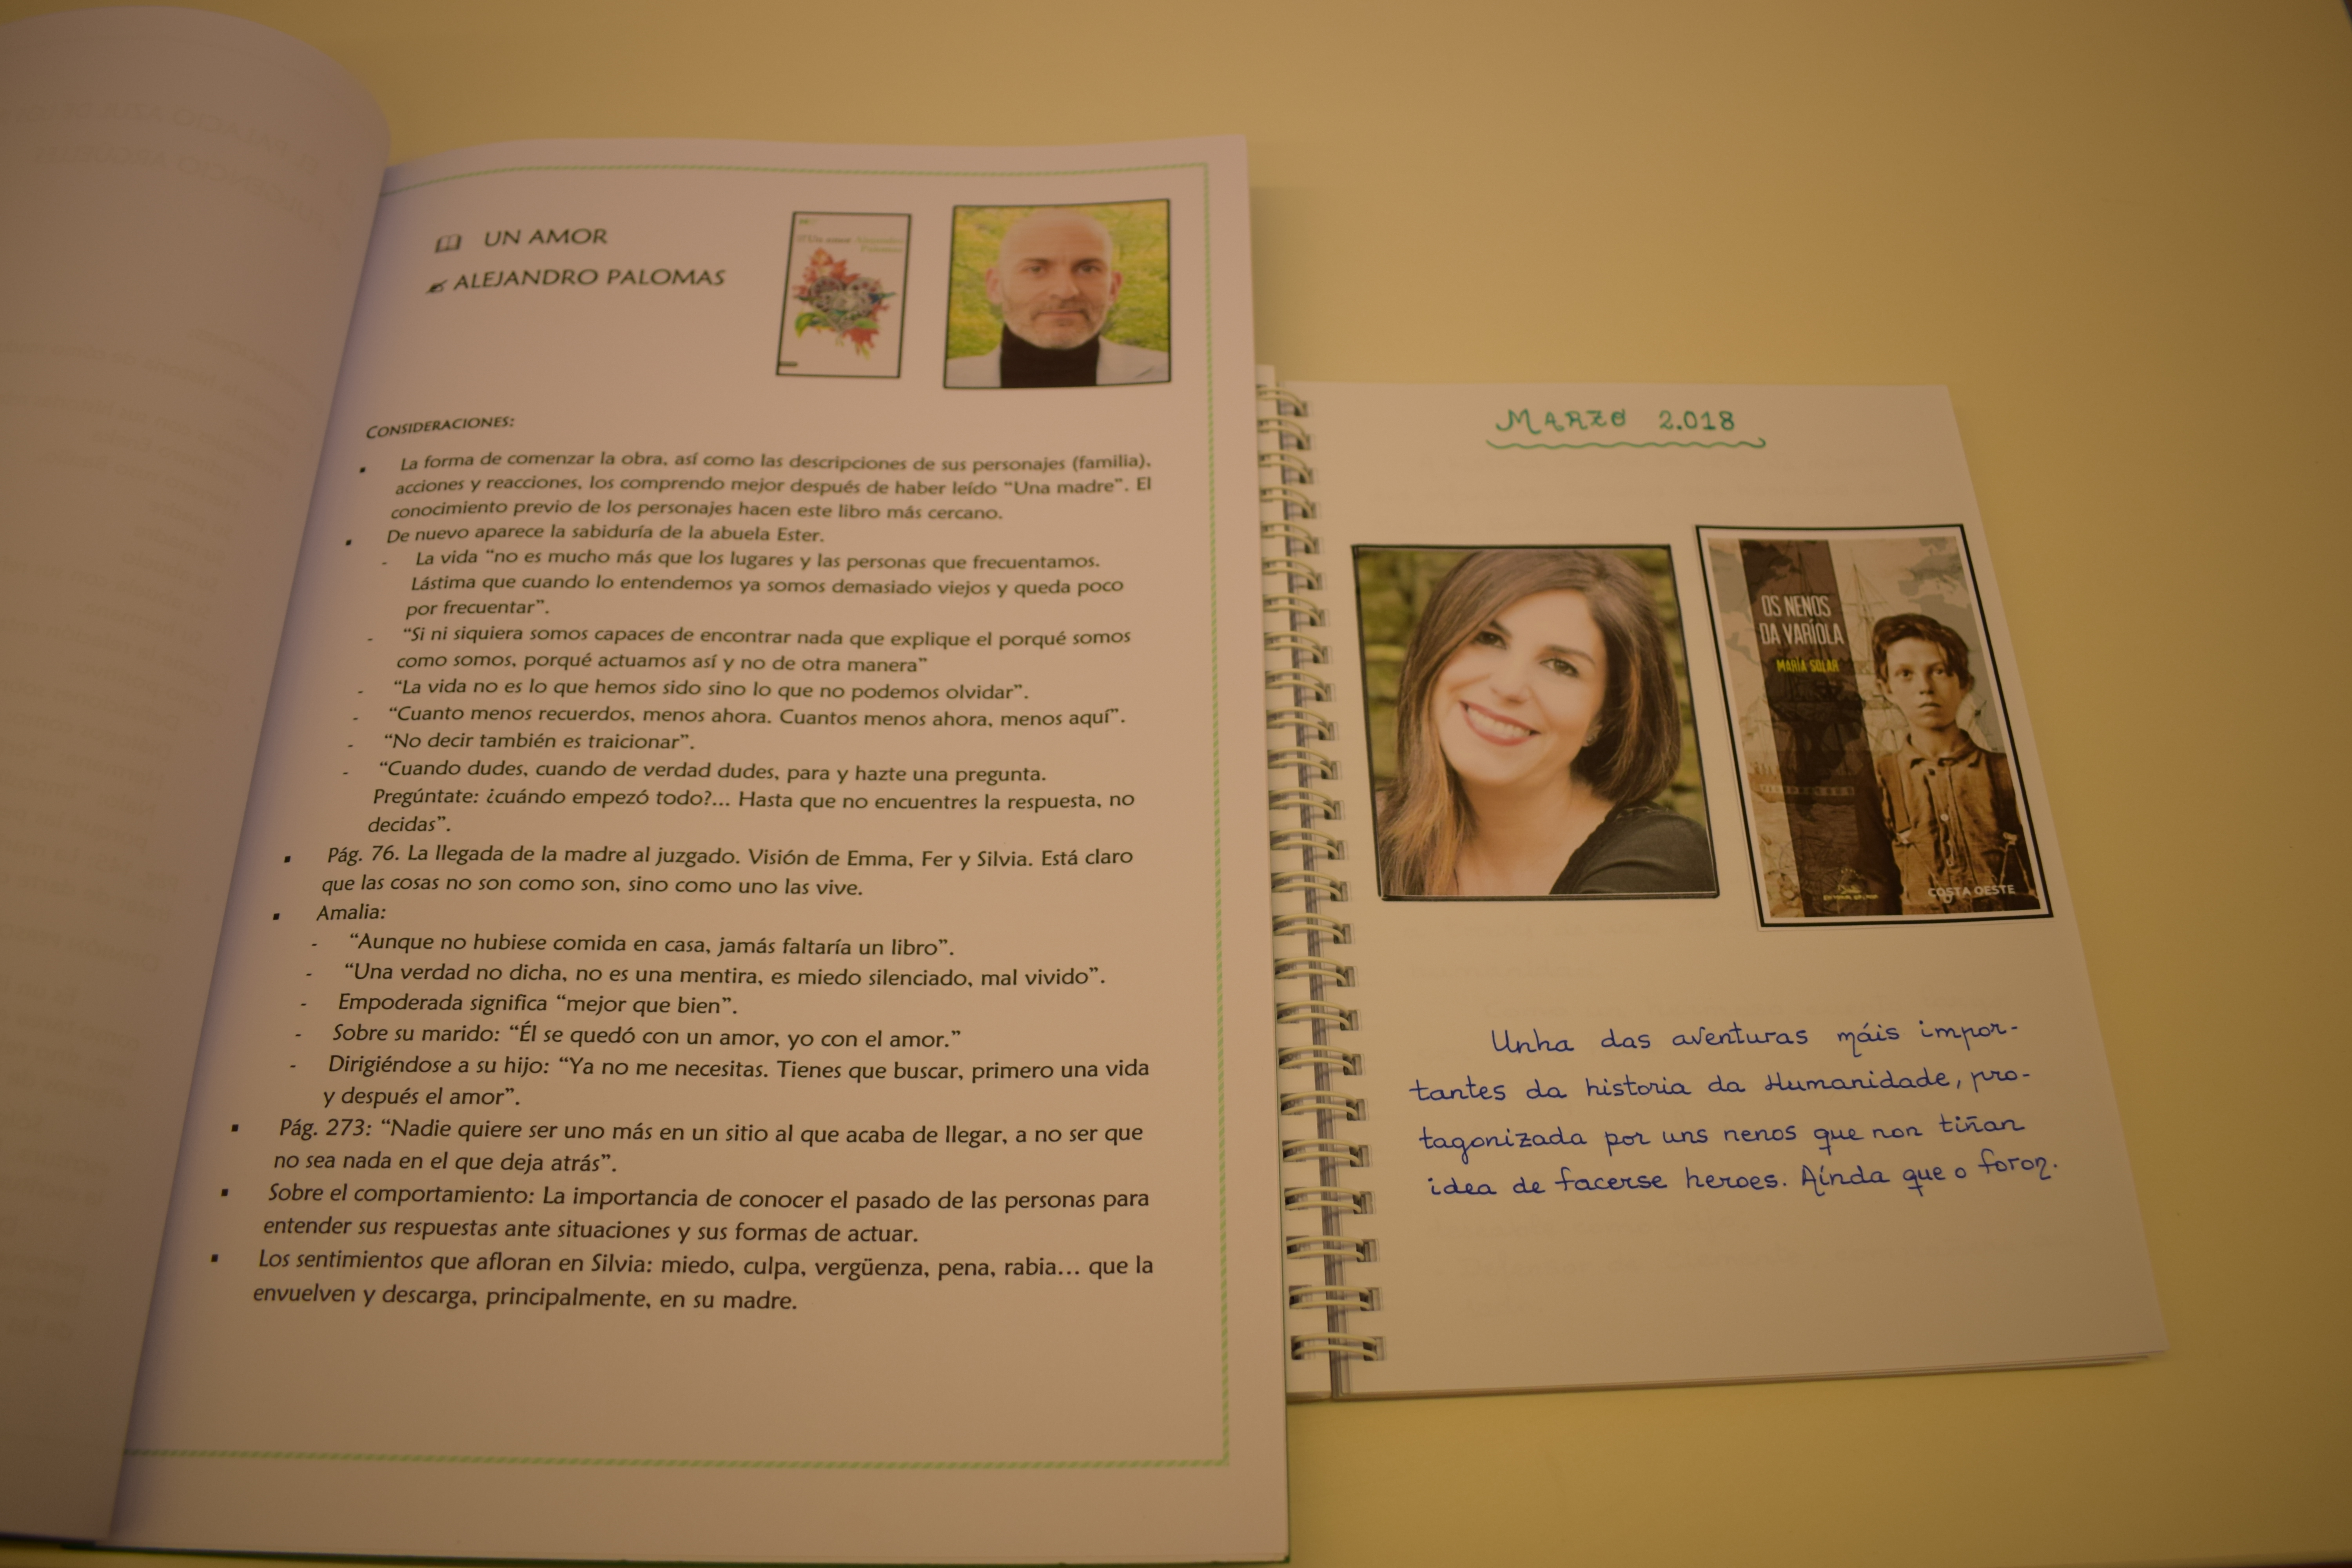 UN AMOR
ALEJANDRO PALOMAS
Un amor Alejandro
Palomas
CONSIDERACIONES:
▪ La forma de comenzar la obra, así como las descripciones de sus personajes (familia),
acciones y reacciones, los comprendo mejor después de haber leído “Una madre”. El
conocimiento previo de los personajes hacen este libro más cercano.
▪ De nuevo aparece la sabiduría de la abuela Ester.
- La vida “no es mucho más que los lugares y las personas que frecuentamos.
Lástima que cuando lo entendemos ya somos demasiado viejos y queda poco
por frecuentar”.
- “Si ni siquiera somos capaces de encontrar nada que explique el porqué somos
como somos, porqué actuamos así y no de otra manera”
- “La vida no es lo que hemos sido sino lo que no podemos olvidar”.
- “Cuanto menos recuerdos, menos ahora. Cuantos menos ahora, menos aquí”.
- “No decir también es traicionar”.
- “Cuando dudes, cuando de verdad dudes, para y hazte una pregunta.
Pregúntate: ¿cuándo empezó todo?... Hasta que no encuentres la respuesta, no
decidas”.
▪ Pág. 76. La llegada de la madre al juzgado. Visión de Emma, Fer y Silvia. Está claro
que las cosas no son como son, sino como uno las vive.
▪ Amalia:
- “Aunque no hubiese comida en casa, jamás faltaría un libro”.
- “Una verdad no dicha, no es una mentira, es miedo silenciado, mal vivido”.
- Empoderada significa “mejor que bien”.
- Sobre su marido: “Él se quedó con un amor, yo con el amor.”
- Dirigiéndose a su hijo: “Ya no me necesitas. Tienes que buscar, primero una vida
y después el amor”.
▪ Pág. 273: “Nadie quiere ser uno más en un sitio al que acaba de llegar, a no ser que
no sea nada en el que deja atrás”.
▪ Sobre el comportamiento: La importancia de conocer el pasado de las personas para
entender sus respuestas ante situaciones y sus formas de actuar.
▪ Los sentimientos que afloran en Silvia: miedo, culpa, vergüenza, pena, rabia... que la
envuelven y descarga, principalmente, en su madre.
MARZO 2.018
OS NENOS
DA VARÍOLA
MARÍA SOLAR
COSTA OESTE
Unha das aventuras máis impor-
tantes da historia da Humanidade, pro-
tagonizada por uns nenos que non tiñan
idea de facerse heroes. Aínda que o foron.